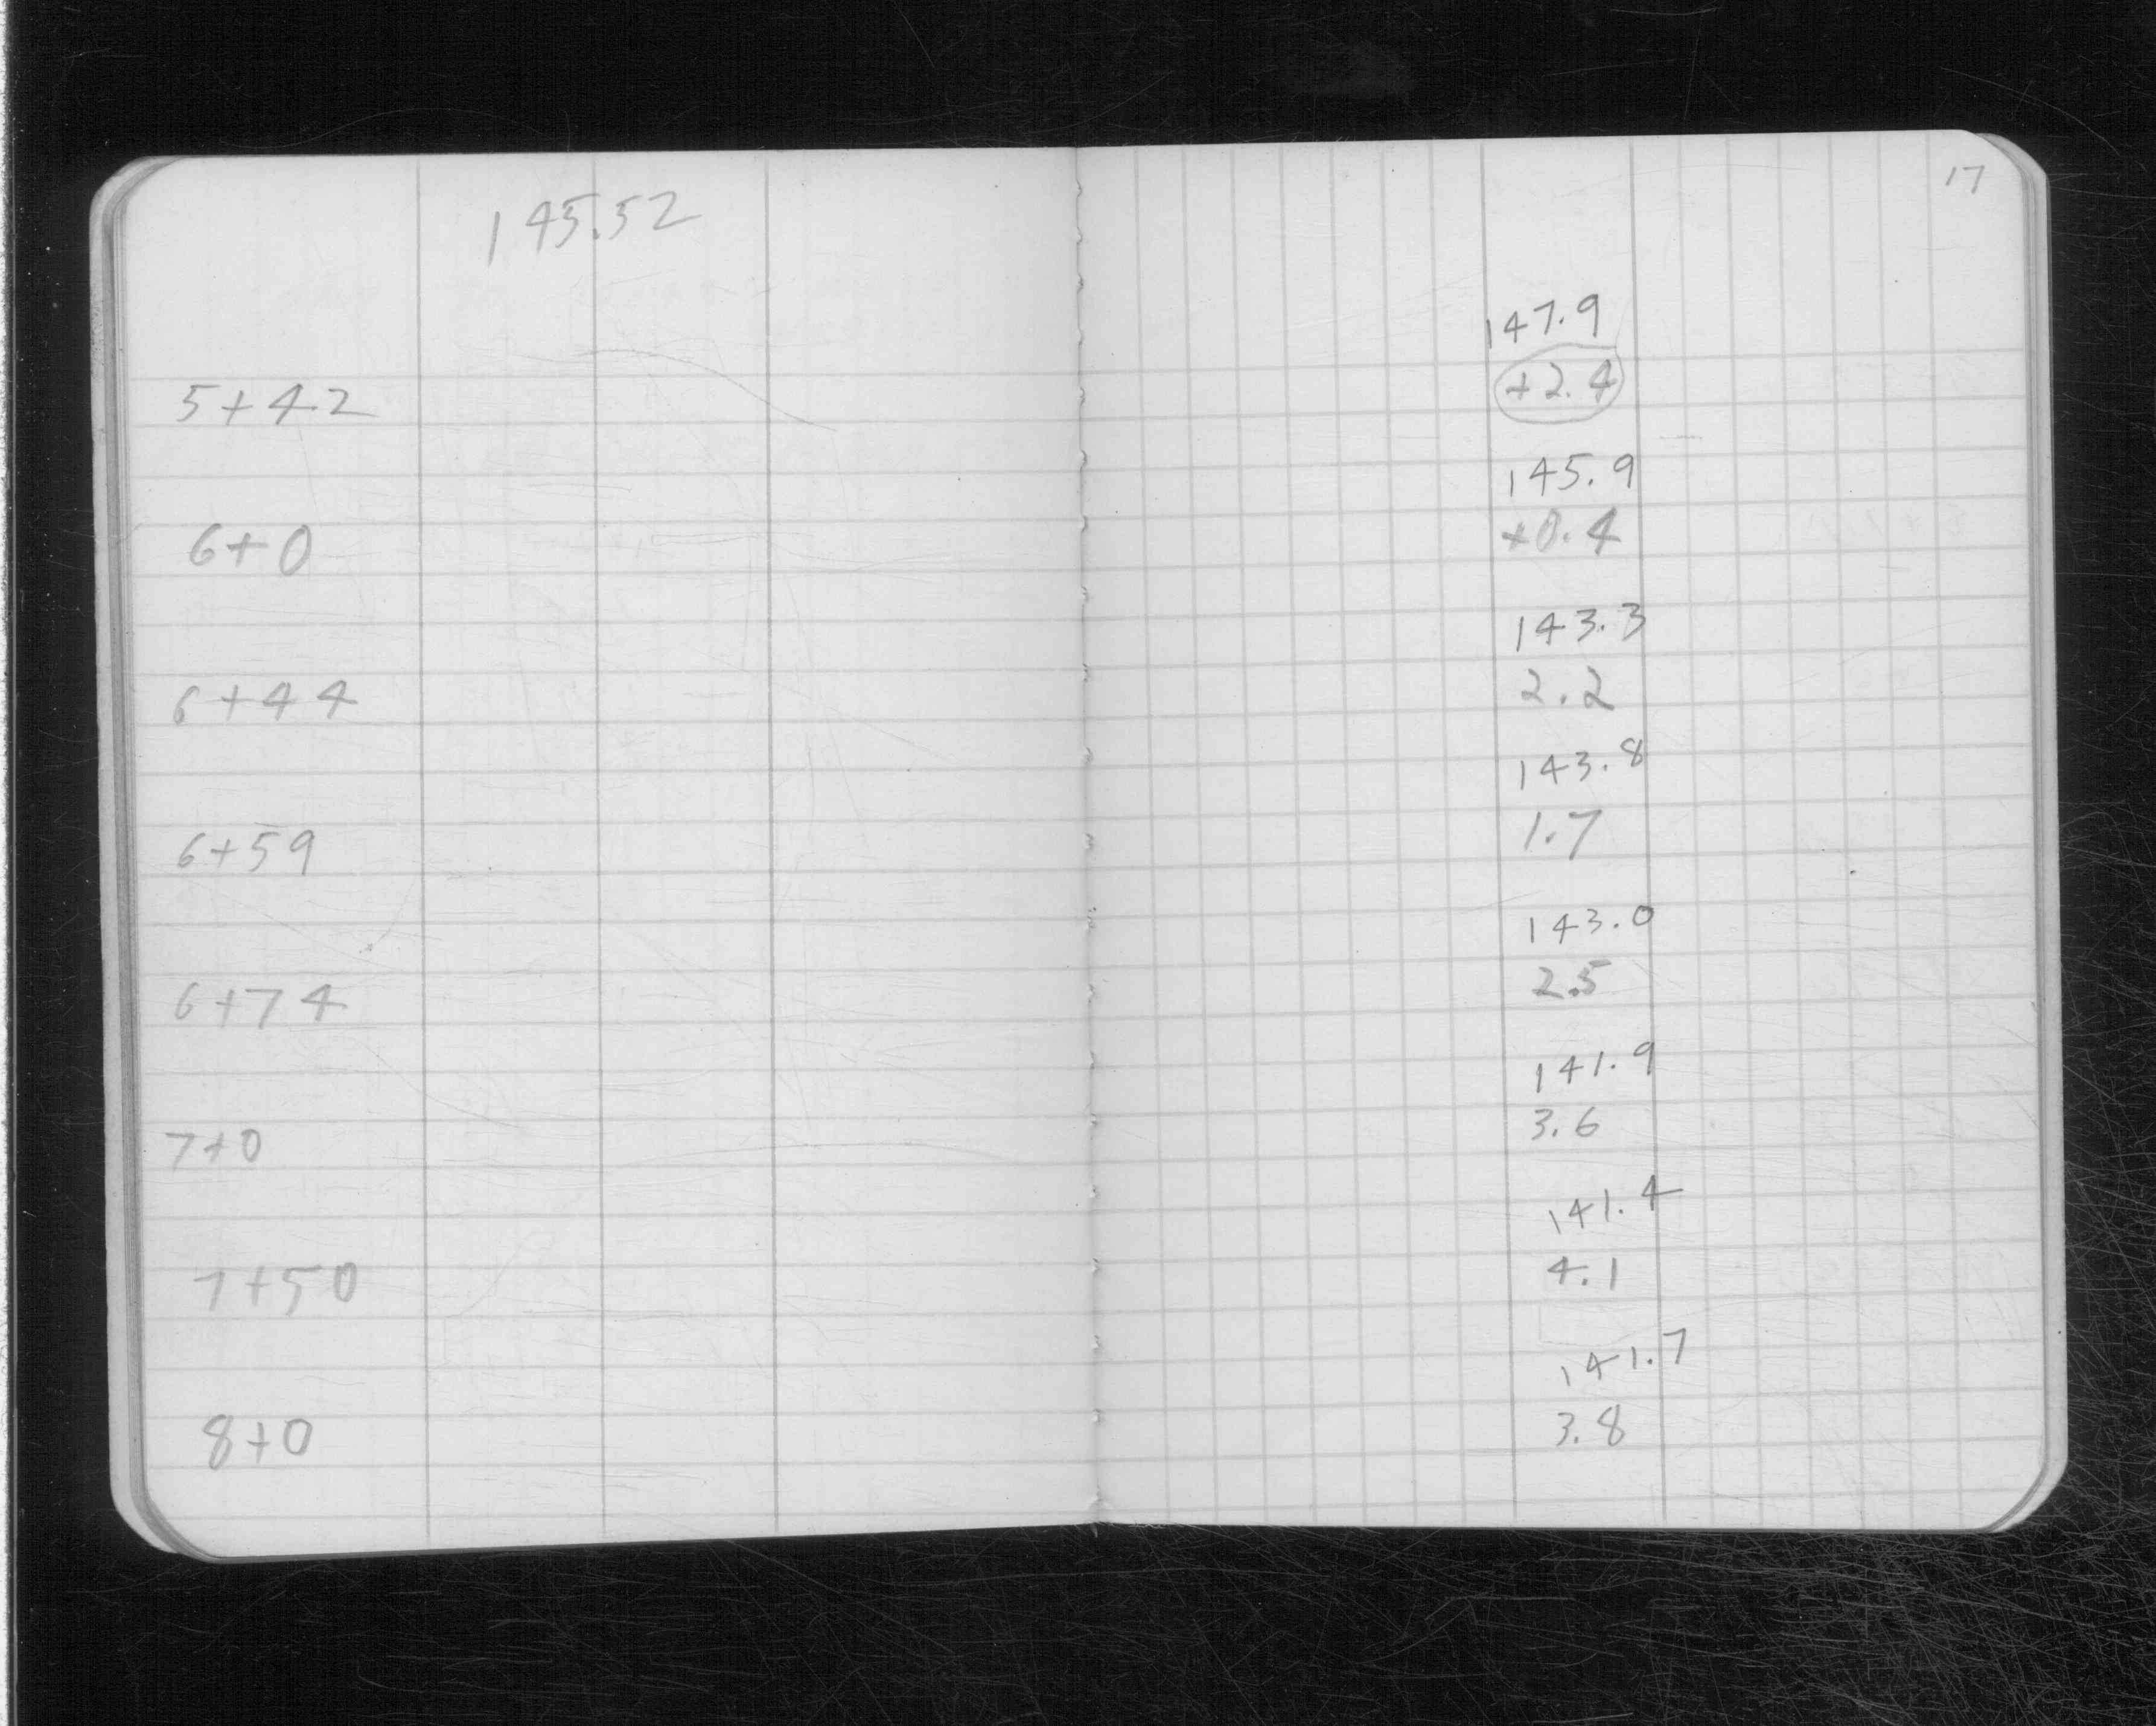 145.52
5+42
6+0
6+44
6+59
6+74
7+0
7+50
8+0
17
147.9
+2.4
145.9
+0.4
143.3
2.2
143.8
1.7
143.0
2.5
141.9
3.6
141.4
4.1
141.7
3.8